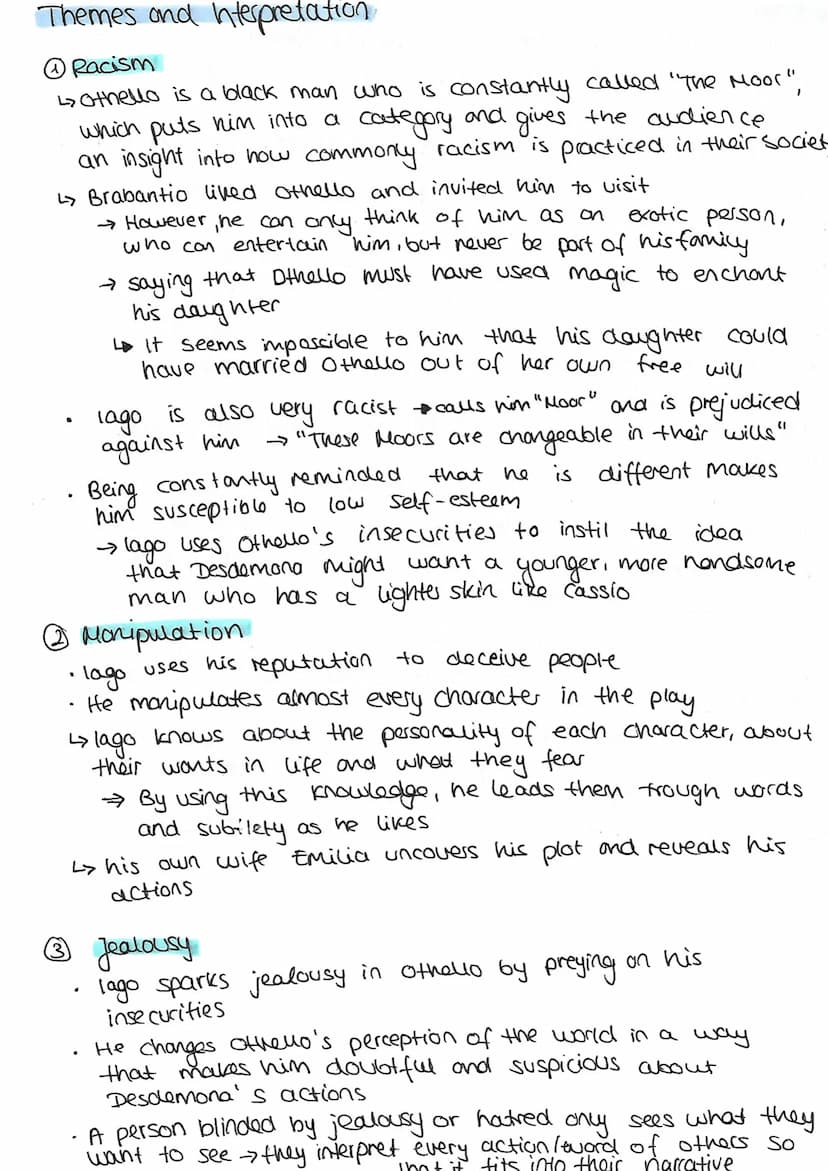 Themes and Interpretation
① Racism
↳ Othello is a black man who is constantly called "The Moor",
which puts him into a category and gives the audience
an insight into how commonly racism is practiced in their societ
↳ Brabantio lived Othello and invited him to visit
→ However, he can only think of him as an exotic person,
who can entertain him, but never be part of his family
→ saying that Othello must have used magic to enchant
his daughter
↳ It seems impossible to him that his daughter could
have married Othello out of her own free will
• Iago is also very racist → calls him "Moor" and is prejudiced
against him → "These Moors are changeable in their wills"
• Being constantly reminded that he is different makes
him susceptible to low self-esteem
→ Iago uses Othello's insecurities to instil the idea
that Desdemona might want a younger, more handsome
man who has a lighter skin like Cassio
② Manipulation
• Iago uses his reputation to deceive people
• He manipulates almost every character in the play
↳ Iago knows about the personality of each character, about
their wants in life and what they fear
⇒ By using this knowledge, he leads them trough words
and subtlety as he likes
↳ his own wife Emilia uncovers his plot and reveals his
actions
③ Jealousy
• Iago sparks jealousy in Othello by preying on his
insecurities
• He changes Othello's perception of the world in a way
that makes him doubtful and suspicious about
Desdemona's actions
• A person blinded by jealousy or hatred only sees what they
want to see → they interpret every action/word of others so
that it fits into their narrative